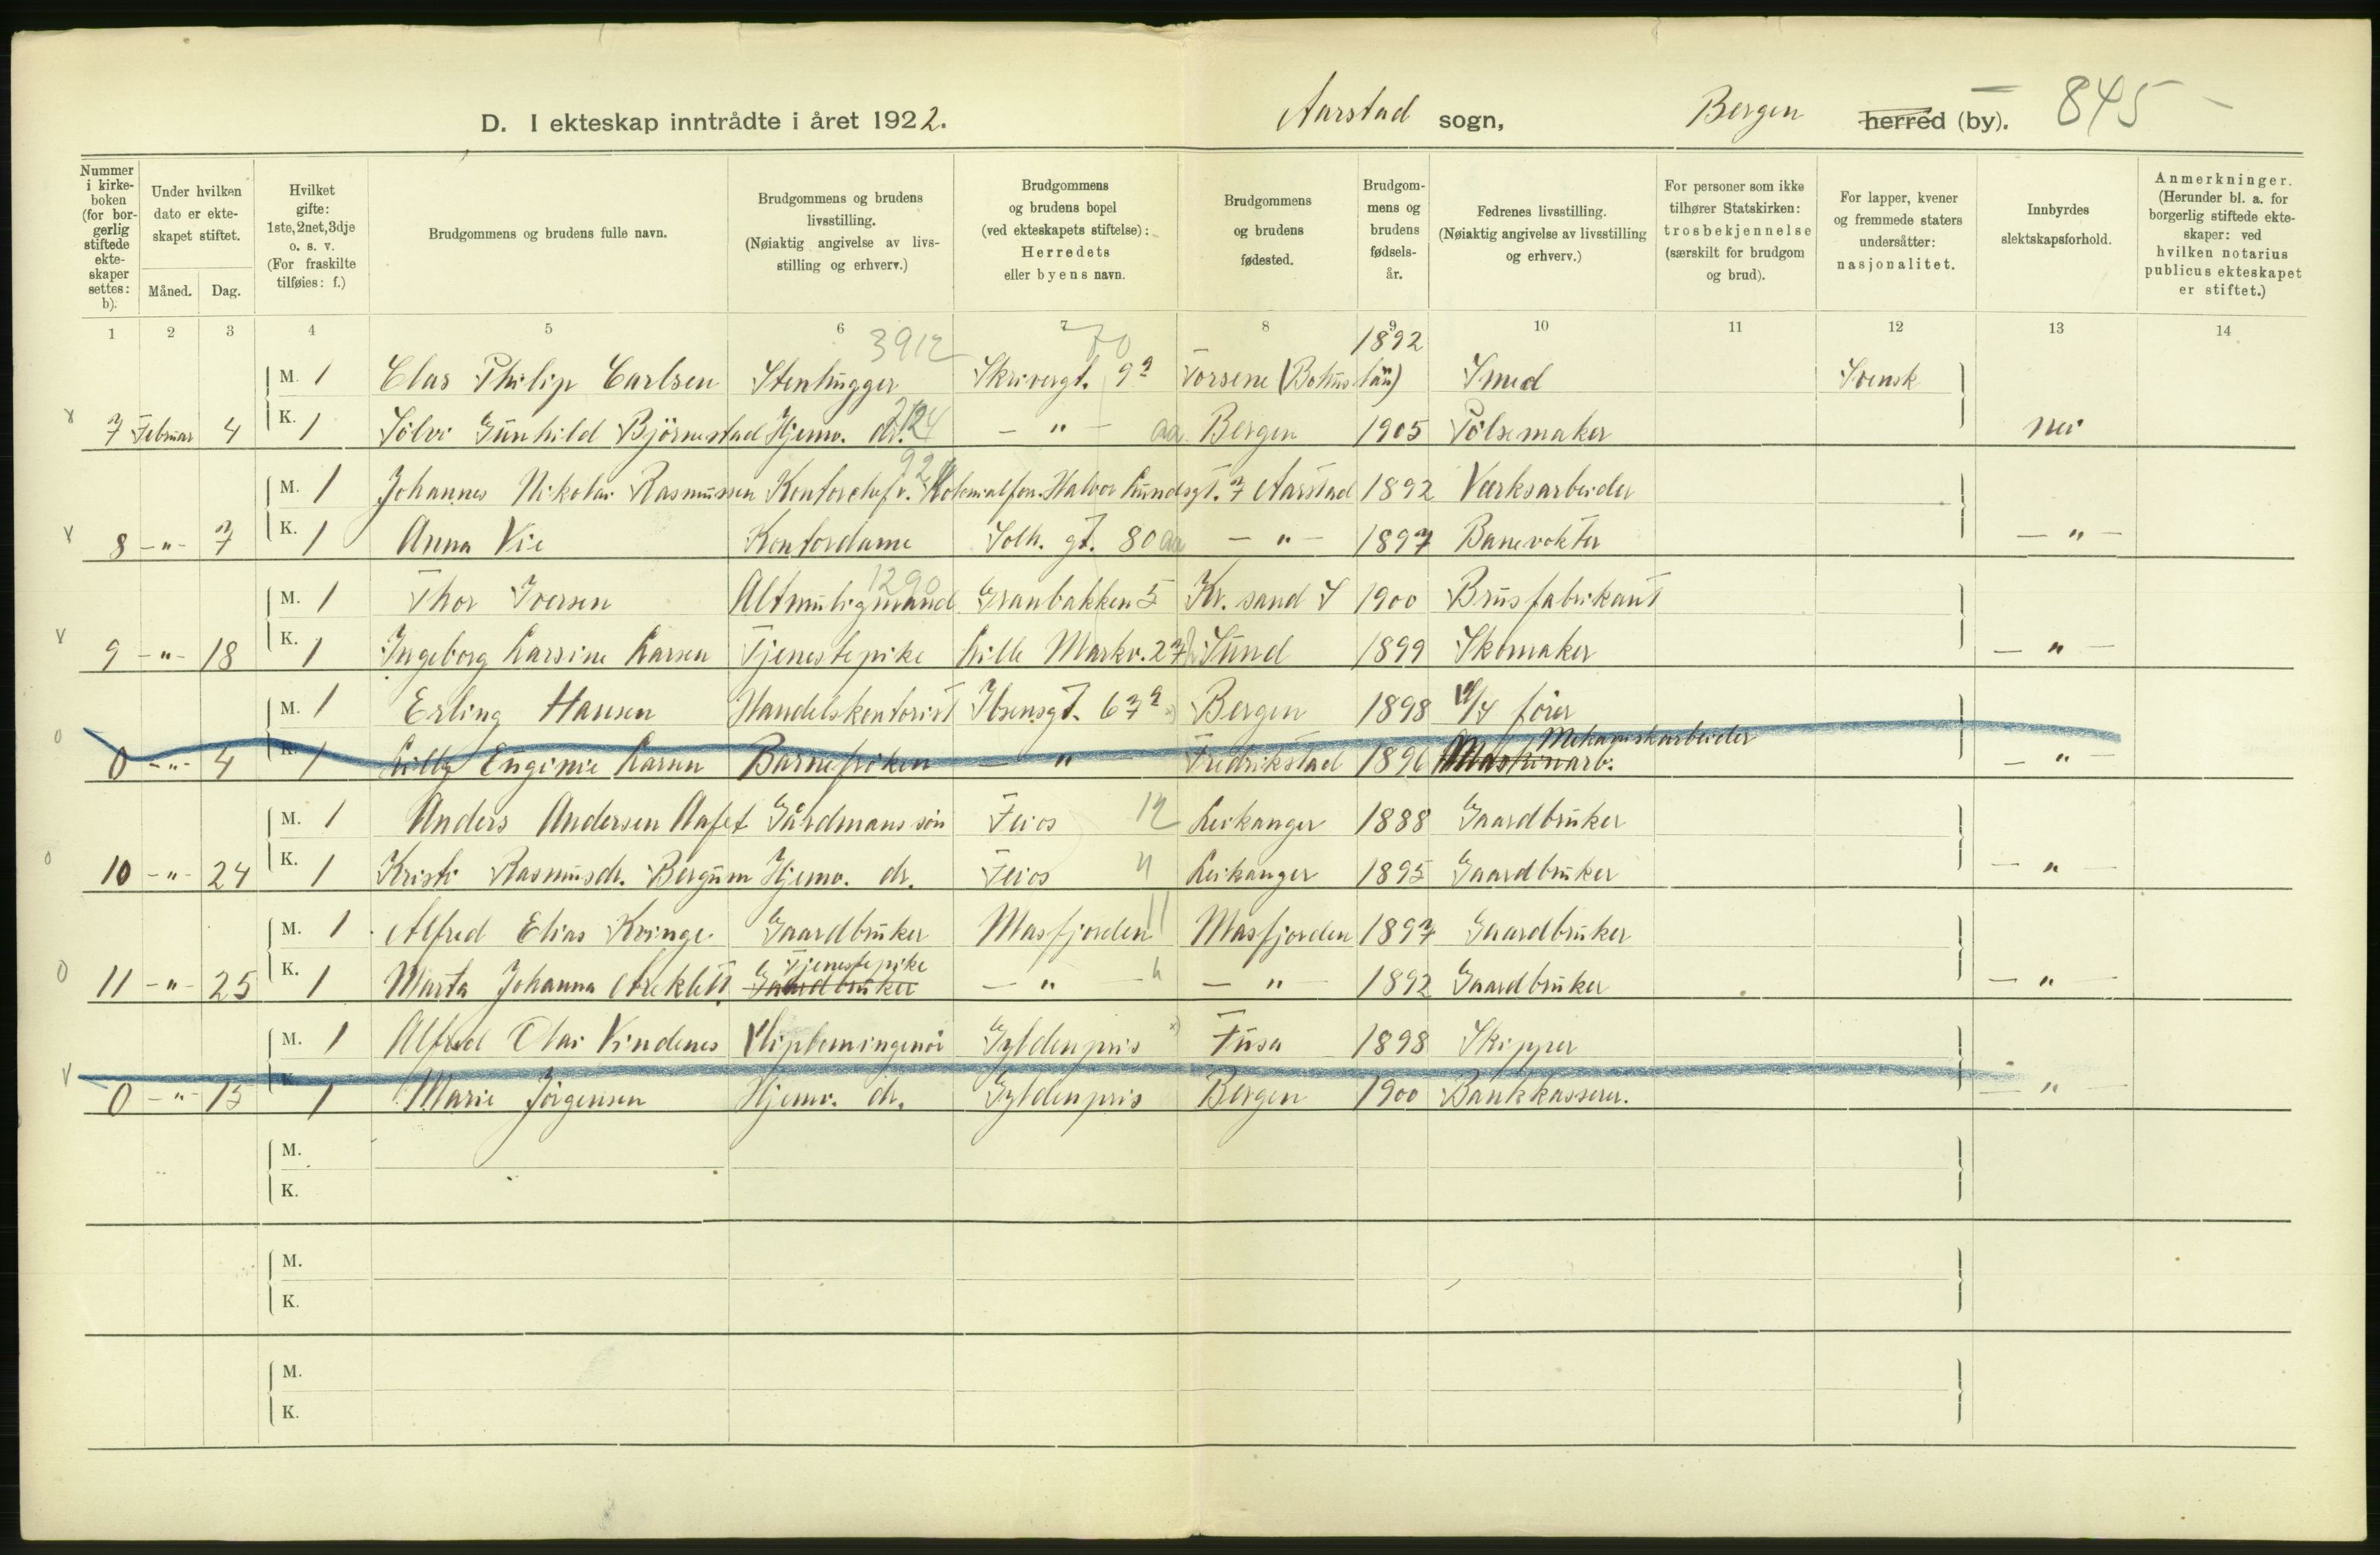 D. I ekteskap inntrådte i året 1922. Aarstad sogn, Bergen herred (by). 845
Nummer i kirke-boken (for bor-gerlig stiftede ekte-skaper settes: b).
Under hvilken dato er ekte-skapet stiftet.
Måned. Dag.
Hvilket gifte: 1ste, 2net, 3dje o. s. v. (For fraskilte tilføies: f.)
Brudgommens og brudens fulle navn.
Brudgommens og brudens livsstilling. (Nøiaktig angivelse av livs-stilling og erhverv.)
Brudgommens og brudens bopel (ved ekteskapets stiftelse): Herredets eller byens navn.
Brudgommens og brudens fødested.
Brudgom-mens og brudens fødsels-år.
Fedrenes livsstilling. (Nøiaktig angivelse av livsstilling og erhverv.)
For personer som ikke tilhører Statskirken: trosbekjennelse (særskilt for brudgom og brud).
For lapper, kvener og fremmede staters undersåtter: nasjonalitet.
Innbyrdes slektskapsforhold.
Anmerkninger. (Herunder bl. a. for borgerlig stiftede ekte-skaper: ved hvilken notarius publicus ekteskapet er stiftet.)
1 2 3 4 5 6 7 8 9 10 11 12 13 14
3912 70
M. 1 Clas Philip Carlsen Stenhugger Skrivergt. 9a Torsene (Bohus län) 1892 Smed Svensk
7 Februar 4 K. 1 Sölvi Gunhild Björnestad Hjemv. dr. — " — aa Bergen 1905 Pölsemaker nei
M. 1 Johannes Nikolai Rasmussen Kontorchef v. Kolonialfor. Halvor Lundsgt. 7 Aarstad 1892 Værksarbeider
8 — " — 7 K. 1 Anna Vie Kontordame Solh. gt. 80 aa — " — 1897 Banevokter — " —
1290
M. 1 Thor Iversen Altmuligmand Granbakken 5 Kr. sand S 1900 Brusfabrikant
9 — " — 18 K. 1 Ingeborg Larsine Larsen Tjenestepike Lille Markv. 27 Sund 1899 Skomaker — " —
M. 1 Erling Hansen Handelskontorist Ibsensgt. 67a Bergen 1898 fører
Mekaniskarbeider
0 — " — 4 K. 1 Lilly Eugenie Larsen Barnefröken — " — Fredrikstad 1896 Maskinarb. — " —
M. 1 Anders Andersen Aafet Gårdmanssön Feios 12 Leikanger 1888 Gaardbruker
10 — " — 24 K. 1 Kristi Rasmusdr. Bergum Hjemv. dr. Feios " Leikanger 1895 Gaardbruker — " —
M. 1 Alfred Elias Kvinge Gaardbruker Masfjorden 11 Masfjorden 1897 Gaardbruker
Tjenestepike
11 — " — 25 K. 1 Marta Johanna Gaardbruker — " — " — " — 1892 Gaardbruker — " —
M. 1 Alfred Olai Vindenes Diplomingeniör Gyldenpris x) Fusa 1898 Skipper
0 — " — 15 K. 1 Marie Jörgensen Hjemv. dr. Gyldenpris Bergen 1900 Bankkasserer. — " —
M.
K.
M.
K.
M.
K.